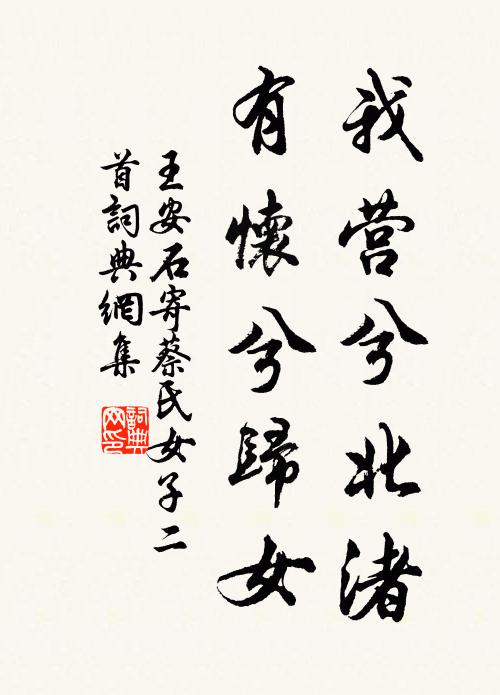 我营兮北渚
有懷兮歸女
王安石寄蔡氏女子二
首詞典網集
詞典
网印